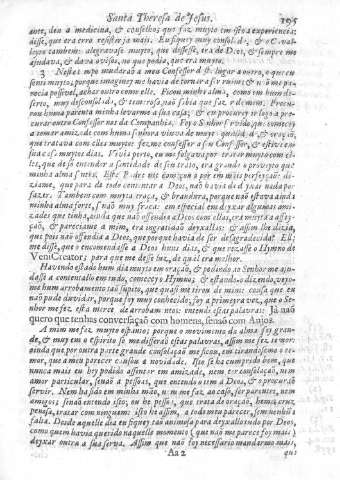 Santa Theresa de Jesus. 195
ave, deu a medicina, & conselhos que faz muyto em isso a experiencia:
disse, que era erro resistir ja mais. Eu fiquey muy consolada, & o Caval-
leyro tambem: alegravase muyto, que dissesse, era de Deos, & sempre me
ajudava, & dava avisos, no que podia, que era muyto.
3 Neste tempo mudaraõ a meu Confessor deste lugar a outro, o que eu
senti muyto, porque imaginey me havia de tornar a ser ruim, & naõ me pa-
recia possivel, achar outro como elle. Ficou minha alma, como em hum de-
serto, muy desconsolada, & temerosa, naõ sabia que fazer de mim. Procu-
rou huma parenta minha levarme a sua casa; & eu procurey ir logo a pro-
curar outro Confessor nos da Companhia. Foy o Senhor servido, que comecey
a tomar amizade com huma senhora viuva de muyta qualidade, & oraçaõ,
que tratava com elles muyto: fezme confessar a seu Confessor, & estive em
sua casa muytos dias. Vivia perto, eu me folgava por tratar muyto com el-
les, que de só entender a santidade de seu trato, era grande o proveyto que
minha alma sentia. Este Padre me começou a por em mais perfeyçaõ: di-
ziame, que para de todo contentar a Deos, naõ havia de deyxar nada por
fazer. Tambem com muyta traça, & brandura, porque naõ estava ainda
minha alma forte, senaõ muy fraca: em especial em deyxar algumas ami-
zades que tinha, ainda que naõ offendia a Deos com ellas, era muyta a affey-
çaõ, & pareciame a mim, era ingratidaõ deyxallas: & assim lhe dizia,
que pois naõ offendia a Deos, que porque havia de ser desagradecida? Elle
me disse, que o encomendasse a Deos huns dias, & que rezasse o Hymno de
Veni Creator; para que me desse luz, de qual era melhor.
Havendo estado hum dia muyto em oraçaõ, & pedindo ao Senhor me aju-
dasse a contentallo em tudo, comecey o Hymno; & estandoo dizendo, veyo-
me hum arrobamento taõ supito, que quasi me tirou de mim: cousa que eu
naõ pude duvidar, porque foy muy conhecido, foy a primeyra vez, que o Se-
nhor me fez esta mercè de arrobamentos: entendi estas palavras: Já naõ
quero que tenhas conversaçaõ com homens, senaõ com Anjos.
A mim me fez muyto espanto; porque o movimento da alma foy gran-
de, & muy em o espirito se me disseraõ estas palavras, assim me fez temor:
ainda que por outra parte grande consolaçaõ me ficou, em tirandose o te-
mor, que a meu parecer causou a novidade. Isso se ha cumprido bem, que
nunca mais eu hey podido assentar em amizade, nem ter consolaçaõ, nem
amor particular, senaõ a pessoas, que entendo o tem a Deos, & o procuraõ
servir. Nem ha sido em minha maõ, nem me faz ao caso, ser parentes, nem
amigos: senaõ entendo isto; ou he pessoa, que trata de oraçaõ, heme cruz
penosa, tratar com ninguem: isto he assim, a todo meu parecer, sem nenhũa
falta. Desde aquelle dia eu fiquey taõ animosa para deyxallo todo por Deos,
como quem havia querido naquelle momento (que naõ me parece foy mais)
deyxar outra a sua serva. Assim que naõ foy necessario mandarmo mais,
Aa 2 que